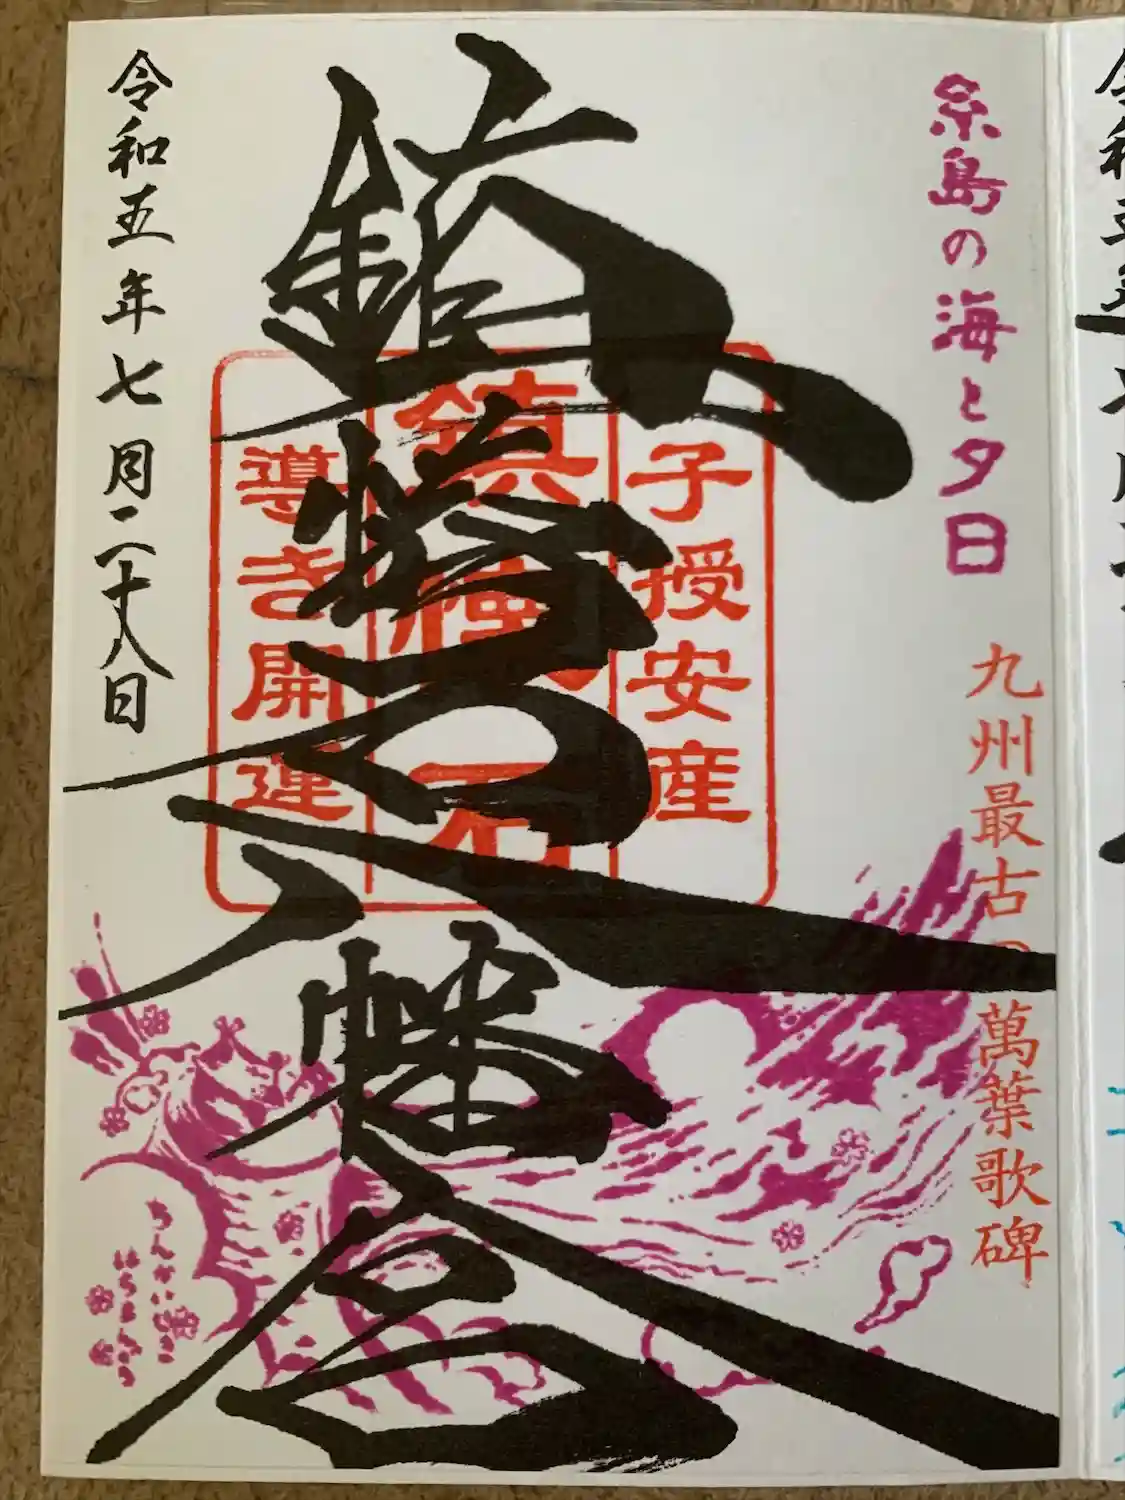 糸島の海と夕日
九州最古の萬葉歌碑
子授安産
鎮懐石
導き開運
鎮懐石八幡宮
令和五年七月二十八日
ちんかいせき
はちまんぐう